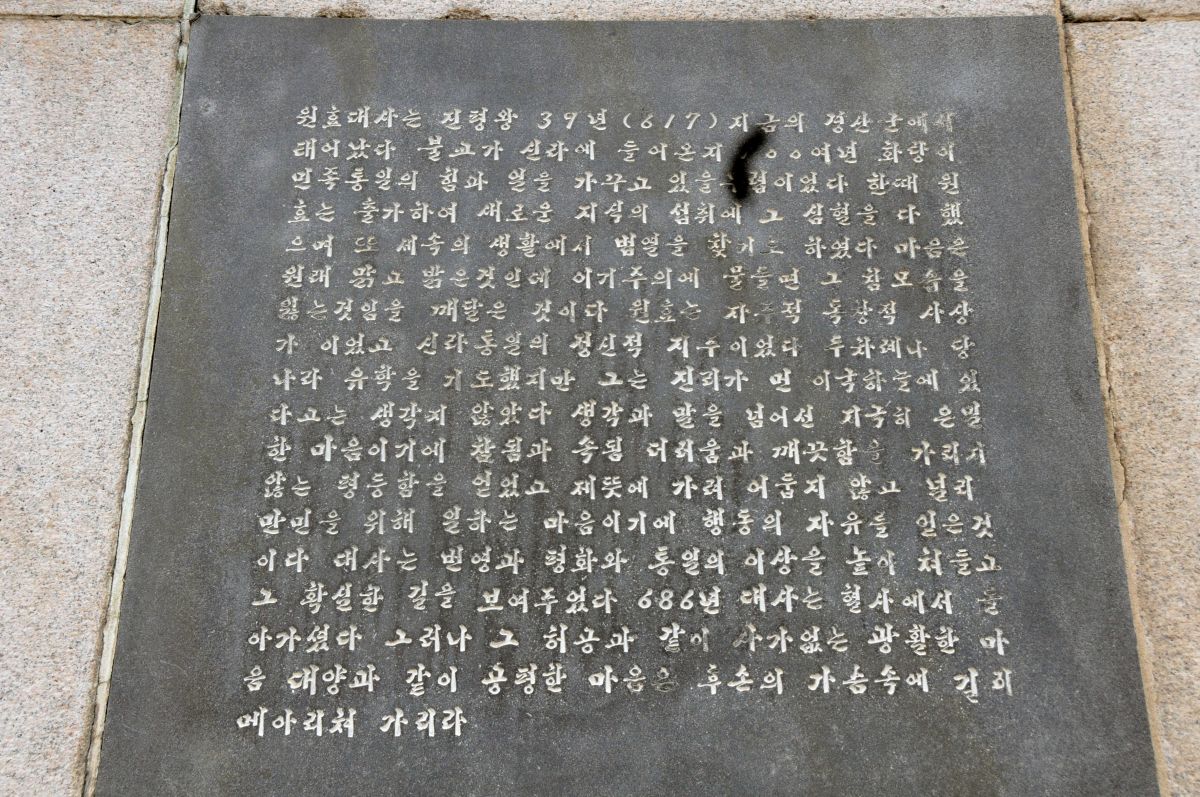 원효대사는 진평왕 39년(617)지금의 경산군에서
태어났다 불교가 신라에 들어온지 여년 화랑이
민족통일의 힘과 얼을 가꾸고 있을 한때 원
효는 출가하여 새로운 지식의 섭취에 그 심혈을 다 했
으며 또 세속의 생활에서 법열을 찾기도 하였다 마음은
원래 맑고 밝은것인데 이기주의에 물들면 그 참모습을
잃는것임을 깨달은 것이다 원효는 자주적 독창적 사상
가 이었고 신라통일의 정신적 지주이었다 두차례나 당
나라 유학을 기도했지만 그는 진리가 먼 이국하늘에 있
다고는 생각지 않았다 생각과 말을 넘어선 지극히 은밀
한 마음이기에 참됨과 속됨 더러움과 깨끗함을 가리지
않는 평등함을 얻었고 제뜻에 가려 어둡지 않고 널리
만민을 위해 일하는 마음이기에 행동의 자유를 얻은것
이다 대사는 번영과 평화와 통일의 이상을 높이 쳐들고
그 확실한 길을 보여주었다 686년 대사는 혈사에서 돌
아가셨다 그러나 그 허공과 같이 사가없는 광활한 마
음 대양과 같이 공평한 마음은 후손의 가슴속에 길리
메아리쳐 가리라